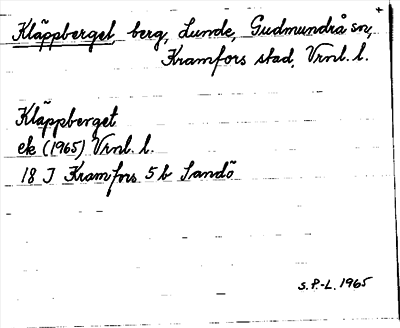 Kläppberget berg, Lunde, Gudmundrå sn,
Kramfors stad, Vrnl. l.
Kläppberget
ek (1965) Vrnl. l.
18 J Kramfors 5 b Sandö
S.P.-L. 1965